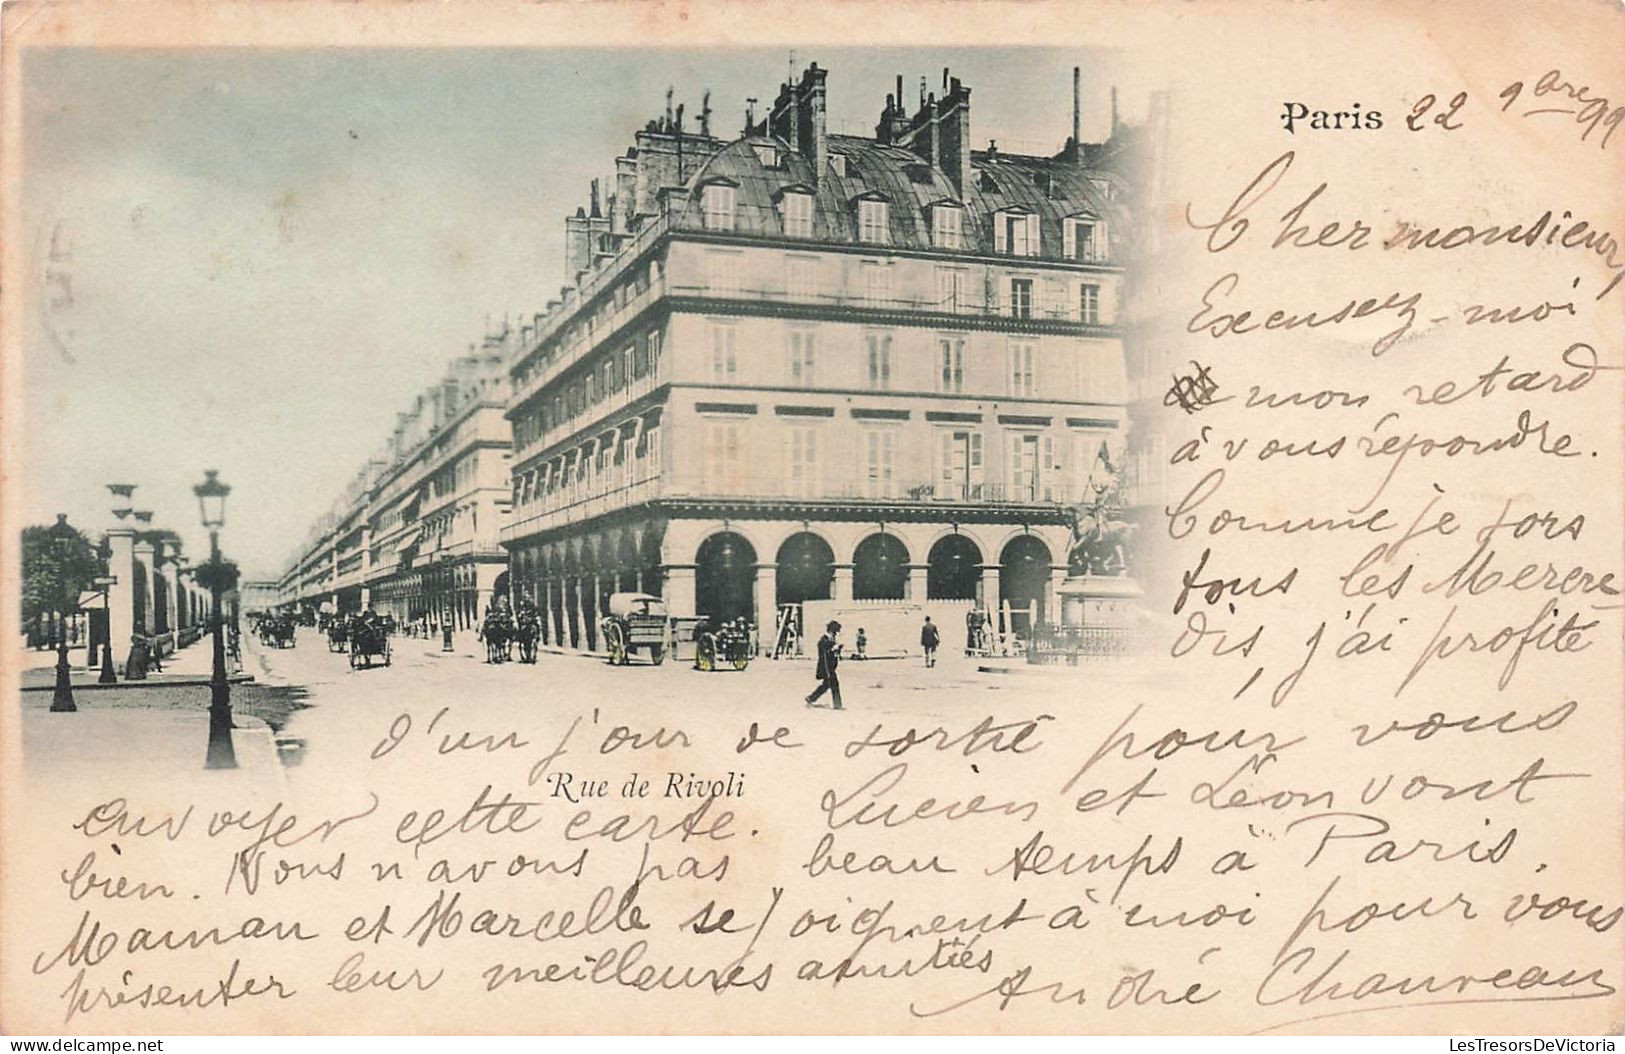 Paris 22 9bre 99
Cher monsieur,
Excusez-moi
mon retard
à vous répondre.
Comme je sors
tous les Mercre
dis, j'ai profité
d'un jour de sortie pour vous
Rue de Rivoli
envoyer cette carte. Lucien et Léon vont
bien. Nous n'avons pas beau temps à Paris.
Maman et Marcelle se joignent à moi pour vous
présenter leur meilleures amitiés
André Chauveau
LesTresorsDeVictoria